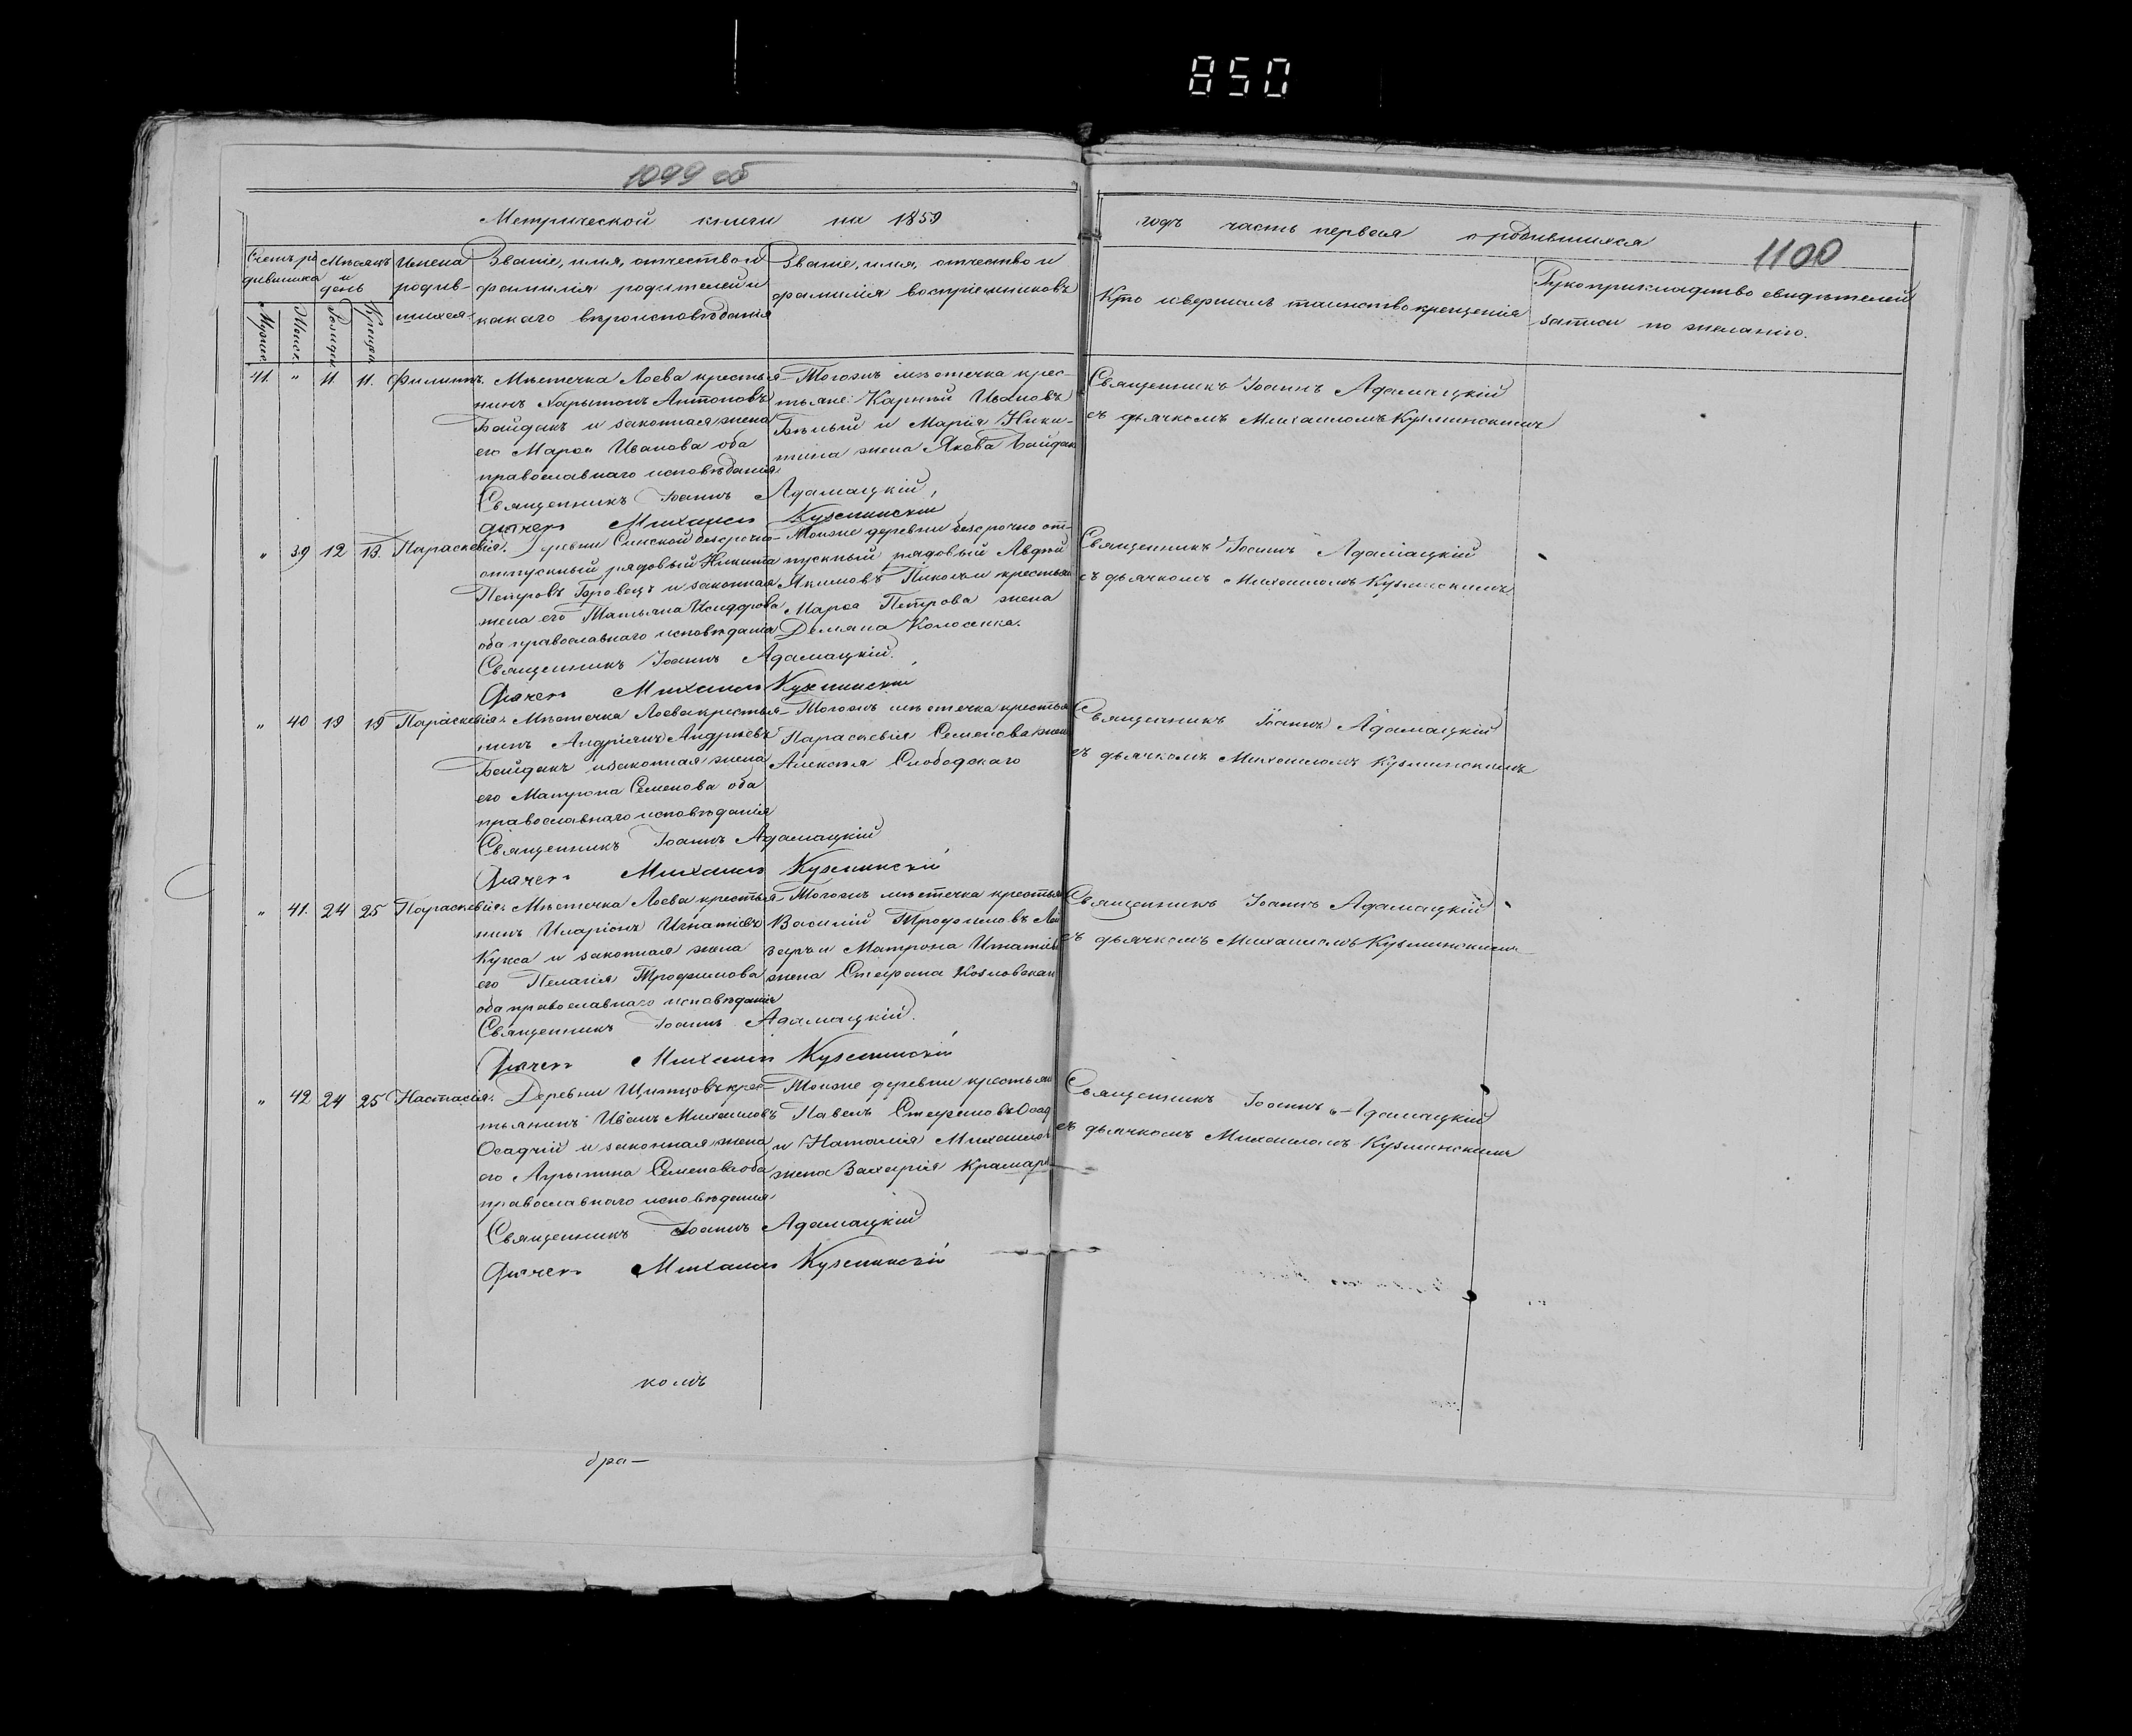 850
1099 об
Метрической книги на 1859
годъ часть первая о родившихся
1100
Счетъ ро-
дившихся
Мѣсяцъ
и
день
Имена
родив-
шихся.
Званіе, имя, отчество и
фамилія родителей и
какаго вѣроисповѣданія
Званіе, имя, отчество и
фамилія воспріемниковъ
Кто совершалъ таинство крещенія
Рукоприкладство свидѣтелей
записи по желанію.
Мужск.
Женск.
Рожден.
Крещен.
41. " 11. 11. Филиппъ. Мѣстечка Лоева крестья-
нинъ Харытонъ Антоновъ
Байдакъ и законная жена
его Марѳа Иванова оба
православнаго исповѣданія
Тогожъ мѣстечка крес-
тьяне: Карпъ Ивановъ
Бѣлый и Марія Ники-
тина жена Якова Байдак
Священникъ Іоаннъ Адамацкій
съ дьячкомъ Михаиломъ Кузминскимъ
Священникъ Іоаннъ Адамацкій,
Дьячекъ Михаилъ Кузминскій
" 39 12 13. Параскевія. Деревни Синской безсрочно-
отпускный рядовый Никита
Петровъ Боровецъ и законная
жена его Татьяна Исидорова
оба православнаго исповѣданія
Тоиже деревни безсрочно от-
пускный рядовый Авдѣй
Якимовъ крестьян
Марѳа Петрова жена
Демяна
Священникъ Іоаннъ Адамацкій
съ дьячкомъ Михаиломъ Кузминскимъ
Священникъ Іоаннъ Адамацкій.
Дьячекъ Михаилъ Кузминскій
" 40 19 19 Параскевія. Мѣстечка Лоева крестья-
нинъ Андріянъ Андрѣевъ
Байдакъ и законная жена
его Матрона Семенова оба
православнаго исповѣданія
Тогожъ мѣстечка крестьян
Параскевія Семенова жена
Алексѣя Слободскаго
Священникъ Іоаннъ Адамацкій
съ дьячкомъ Михаиломъ Кузминскимъ
Священникъ Іоаннъ Адамацкій
Дьячекъ Михаилъ Кузминскій
" 41. 24 25 Параскевія. Мѣстечка Лоева крестья-
нинъ Иларіонъ Игнатіевъ
Кукса и законная жена
его Пелагія Трофимова
оба православнаго исповѣданія
Тогожъ мѣстечка крестьян
Василій Трофимовъ
и Матрона Игнатіев
жена Стефана Козловскаго
Священникъ Іоаннъ Адамацкій
съ дьячкомъ Михаиломъ Кузминскимъ
Священникъ Іоаннъ Адамацкій.
Дьячекъ Михаилъ Кузминскій
" 42 24 25 Настасія. Деревни Щитцовъ крес-
тьянинъ Иванъ Михаиловъ
Осадчій и законная жена
его Агрыпина Семенова оба
православнаго исповѣданія
Тоиже деревни крестьян
Павелъ Стефановъ Осад
и Наталія Михаилов
жена Захарія Крамар
Священникъ Іоаннъ Адамацкій
съ дьячкомъ Михаиломъ Кузминскимъ
Священникъ Іоаннъ Адамацкій
Дьячекъ Михаилъ Кузминскій
комъ
бра-